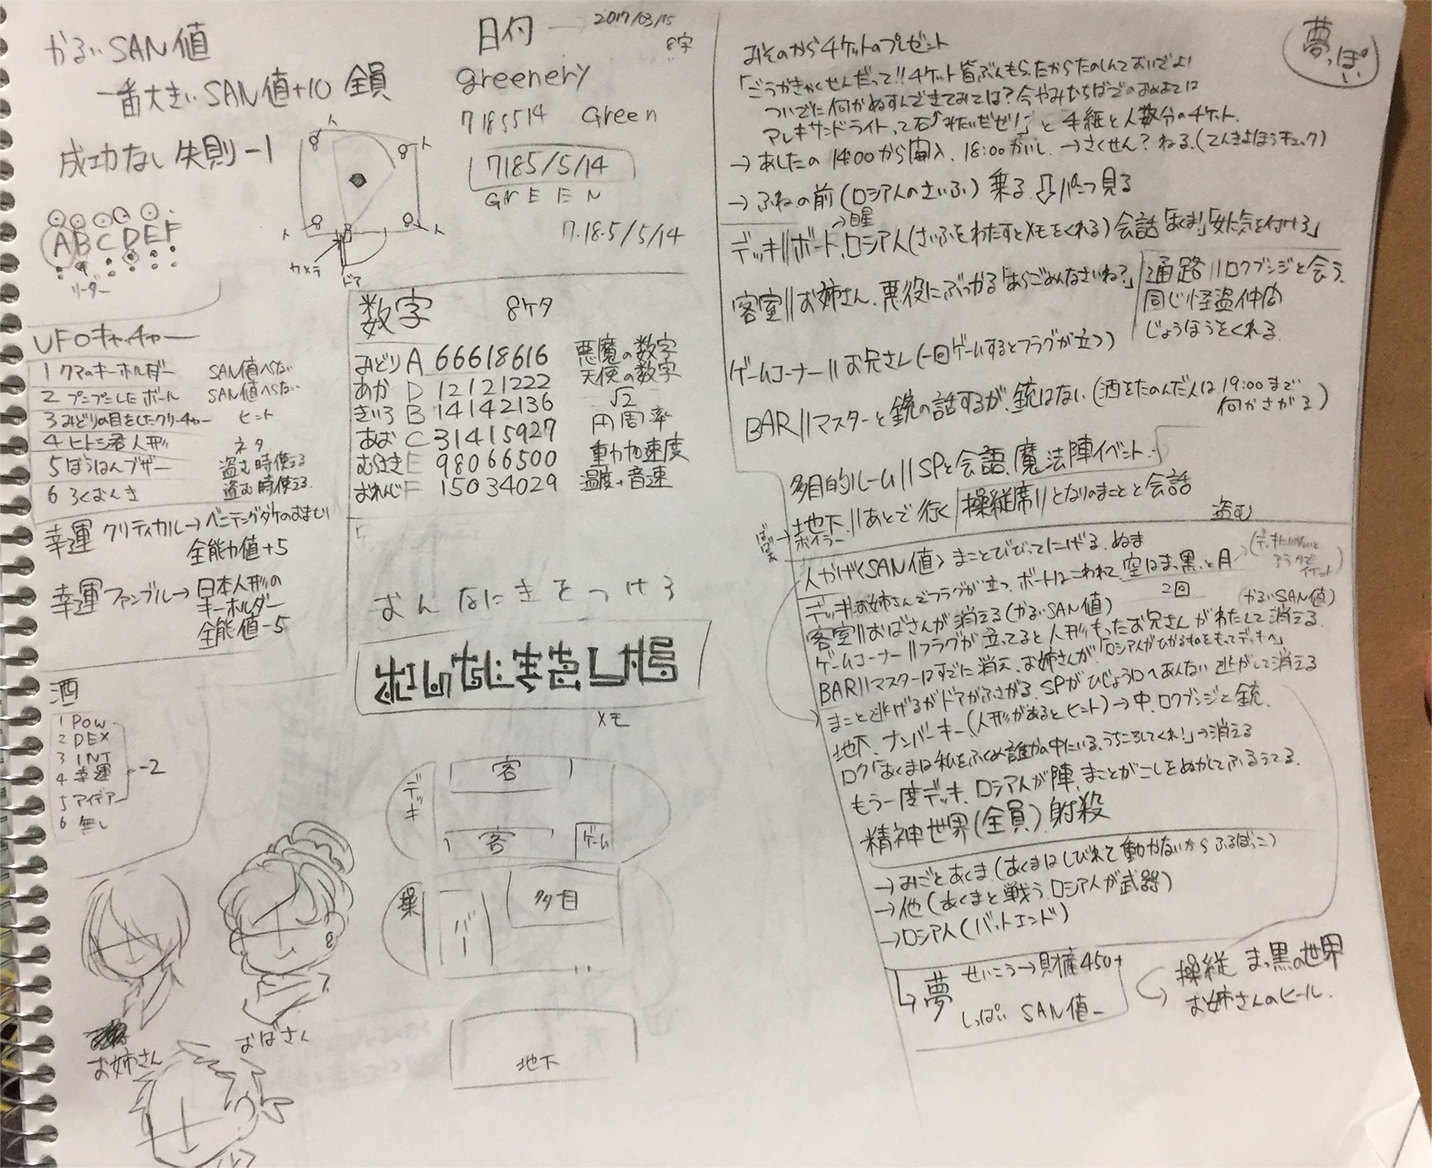 かるいSAN値
一番大きいSAN値+10 全員
成功なし 失則-1
ABCDEF
リーダー
日付 → 2017/03/15
8字
greenery
7185514 Green
7185/5/14
GrEEN
7.18.5/5/14
カメラ
ドア
UFOキャッチャー
1 クマのキーホルダー SAN値へらない
2 プニプニしたボール SAN値へらない
3 みどりの目をしたクリーチャー ヒント
4 ヒトシ君人形 ネタ
5 ぼうはんブザー 盗む時使える
6 ろくおんき 盗む時使える
幸運 クリティカル→ベニテングダケのおまもり
全能力値+5
幸運 ファンブル→日本人形の
キーホルダー
全能値-5
数字 8ケタ
みどり A 66618616 悪魔の数字
あか D 12121222 天使の数字
きいろ B 14142136 √2
あお C 31415927 円周率
むらさき E 98066500 重力加速度
おれんじ F 15034029 温度+音速
おんなにきをつけろ
メモ
酒
1 POW
2 DEX
3 INT
4 幸運
5 アイデア
6 無し
-2
デッキ
客
客
ゲーム
操
バー
多目
地下
お姉さん
おばさん
夢っぽい
みそのからチケットのプレゼント
「ごうかきゃくせんだって!!チケット皆ぶんもらったからたのしんでおいでよ!
アレキサンドライトって石「みたいだぜ!」と手紙と人数分のチケット
→あしたの14:00から開入、18:00かいし →さくせん? ねる。(てんきよほうチェック)
→ふねの前(ロシア人のさいふ)乗る
デッキ||ボート、ロシア人(さいふをわたすとメモをくれる)会話「あくま」「女に気を付けろ」
客室||お姉さん、悪役にぶつかる「あらごめんなさいね?」
通路||ロクブンジと会う、
同じ怪盗仲間
じょうほうをくれる
ゲームコーナー||お兄さん(一回ゲームするとフラグが立つ)
BAR||マスターと銃の話するが、銃はない(酒をたのんだ人は19:00まで
何かさがる)
多目的ルーム||SPと会話、魔法陣イベント
→地下||あとで行く
ボイラー
操縦席||となりのまことと会話
盗む
人かげ<SAN値> まことびびってにげる ぬま
デッキ||お姉さんでフラグが立つ、ボートはこわれて、空はまっ黒いと月
2回
客室||おばさんが消える(かるいSAN値)
(かるいSAN値)
ゲームコーナー||フラグが立ってると人形もったお兄さんがわたして消える
BAR||マスターはすでに消天、お姉さんが「ロシア人がひかるものをもってデッキへ」
まこと逃げるがドアがふさがる、SPがひじょう口へあんない 逃がして消える
地下、ナンバーキー(人形があるとヒント)→中、ロクブンジと銃
ロク「あくまは私をふくめ誰かの中にいる、うちころしてくれ!」→消える
もう一度デッキ、ロシア人が陣、まことがこしをぬかしてふるえてる
精神世界(全員) 射殺
→みごとあくま(あくまはしびれて動かないからふるぼっこ)
→他(あくまと戦う ロシア人が武器)
→ロシア人(バットエンド)
夢 せいこう→財産450+
しっぱい SAN値-
操縦 まっ黒の世界
お姉さんのヒール